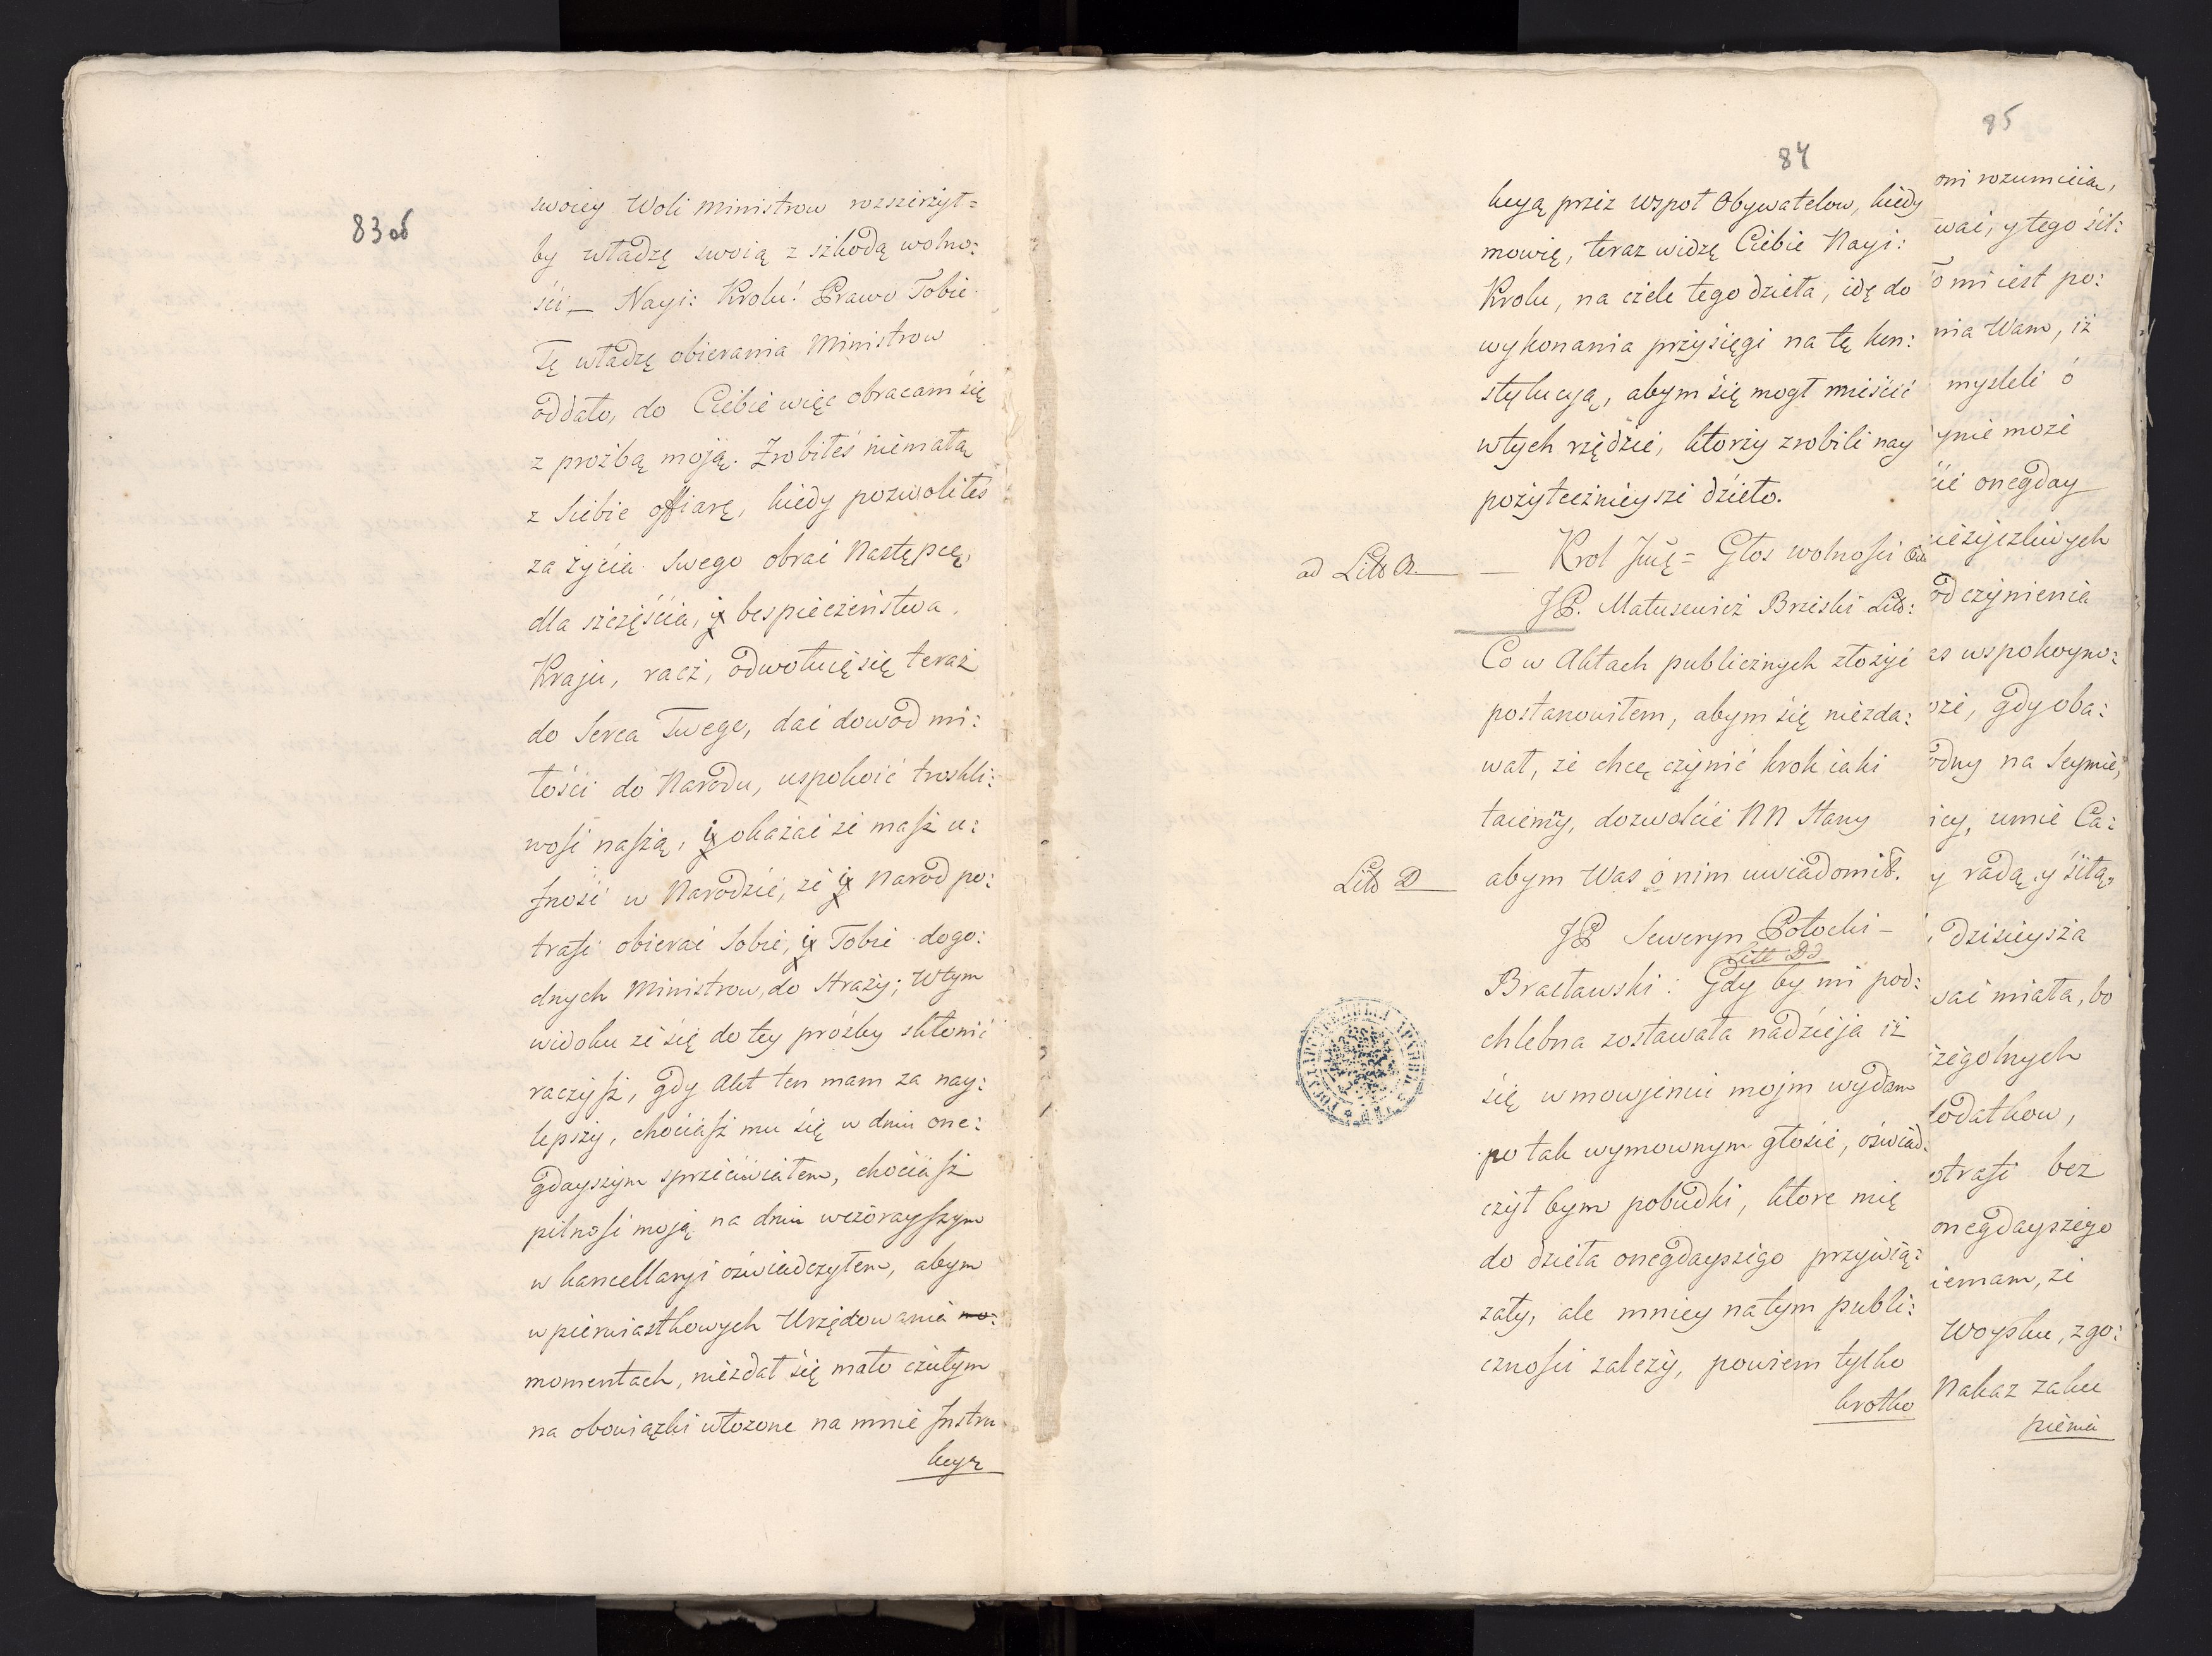 83 об
swoiey Woli Ministrow rozszerzył=
by władzę swoią z szkodą wolno:
ści_ Nayi: Krolu! Prawo Tobie
Tę władzę obierania Ministrow
oddało, do Ciebie więc obracam się
z proźbą moją. Zrobiłeś niemałą
z Siebie offiarę, kiedy pozwoliłeś
za życia Swego obrać Następcę,
dla szczęścia, i bespieczeństwa
Kraju, racz, odwołuię się teraz
do Serca Twego, dać dowod mi:
łości do Narodu, uspokoić troskli:
wość naszą, i okazać że masz u:
fność w Narodzie, że i Narod po:
trafi obierać Sobie, i Tobie dogo:
dnych Ministrow, do Straży; Wtym
widoku że się do tey proźby skłonić
raczysz, gdy Akt ten mam za nay:
lepszy, chociasz mu się w dniu one:
gdayszym sprzeciwiałem, chociasz
pilność moją na dniu wczorayszym
w kancellaryi oświadczyłem, abym
w pierwiastkowych Urzędowania mo:
momentach, niezdał się mało czułym
na obowiązki włożone na mnie Instru
kcyą
84
kcyą przez wspoł Obywatelow, kiedy
mowię, teraz widzę Ciebie Nayi:
Krolu, na czele tego dzieła, idę do
wykonania przysięgi na tę kon:
stytucyą, abym się mogł mieścić
wtych rzędzie, ktorzy zrobili nay
pożytecznieysze dzieło.
ad Litt A. — Krol Jmę= Głos wolności
JP. Matusewicz Brzeski Litt:
Co w Aktach publicznych złożyć
postanowiłem, abym się niezda:
wał, że chcę czynić krok iaki
taiemny, dozwolcie NN Stany
Litt D abym Was o nim uwiadomił.
JP Seweryn Potocki –
Litt Dd
Bracławski: Gdy by mi pod:
chlebna zostawała nadzieja iż
się wmowieniu mojm wydam
po tak wymownym głosie, oświad:
czył bym pobudki, ktore mię
do dzieła onegdayszego przywią:
zały, ale mniey natym publi:
czności zależy, powiem tylko
krotko
85
oni rozumieiąc,
wać, y tego śił:
To mi iest po:
nia Wam, iż
mysleli ó
ynie może
cie onegday
ieżyczliwych
odczynienia
as wspokoyno:
oże, gdy oba:
odny na Seymie,
icy, umie Ca:
y radą, y śiłą,
dzisieysza
wać miała, bo
zegolnych
dodatkow,
otrafi bez
onegdayszego
iemam, że
Woysku, zgo:
Nakaz zaku
pienia